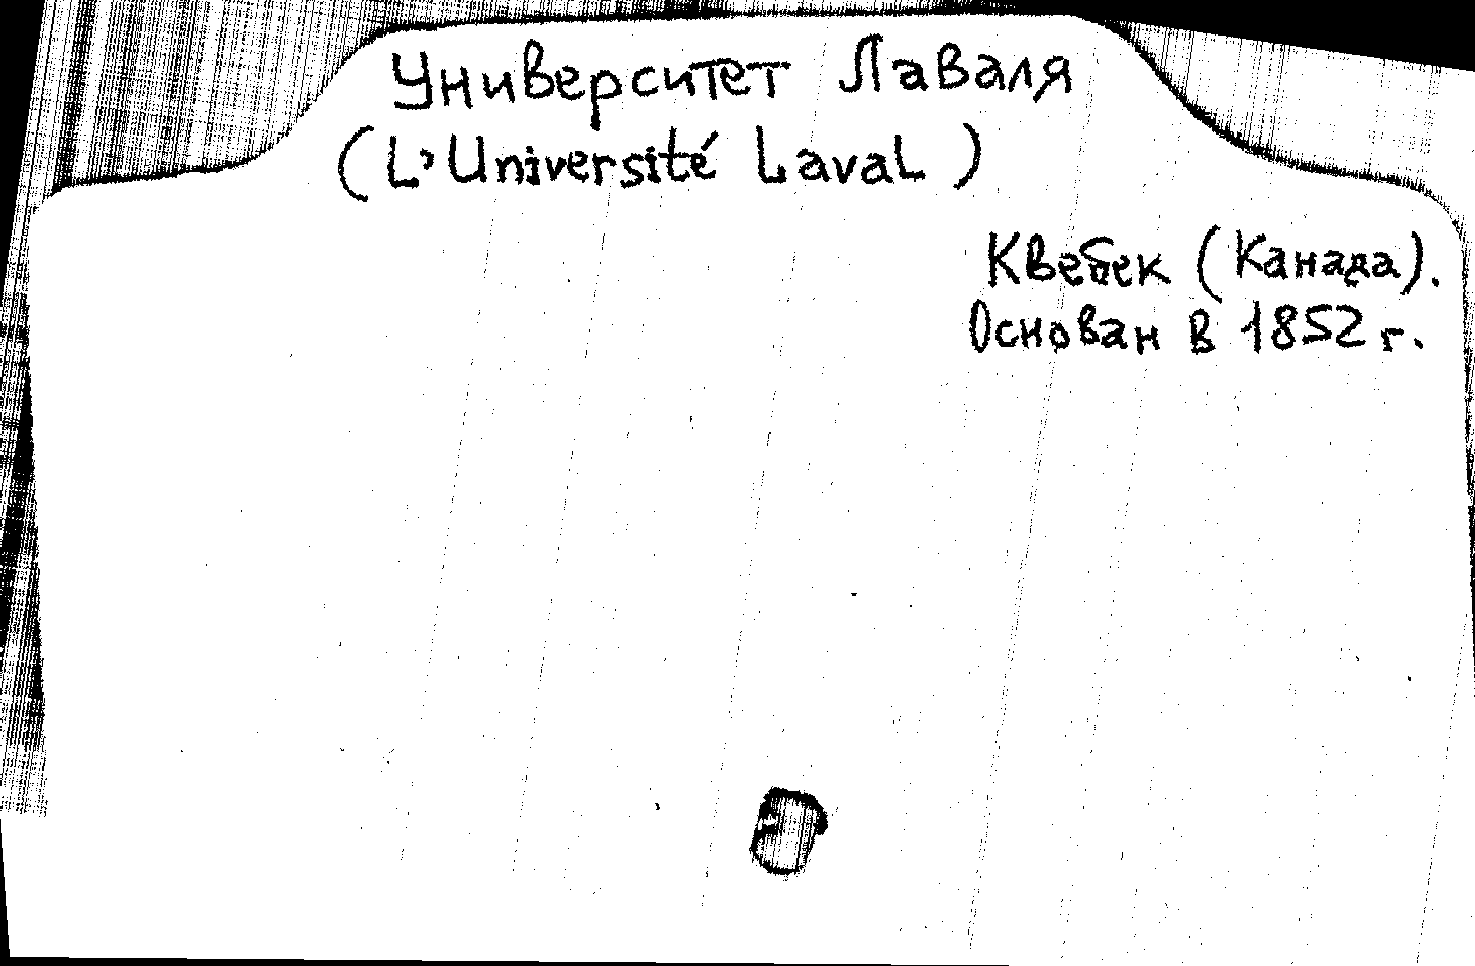 Университет Лаваля
(L'Université Laval)
Квебек (Канада).
Основан в 1852 г.